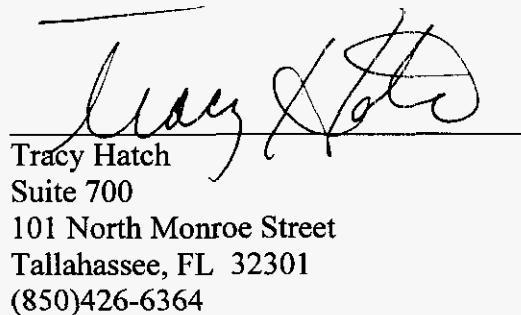 Tracy Hatch
Tracy Hatch
Suite 700
101 North Monroe Street
Tallahassee, FL 32301
(850)426-6364